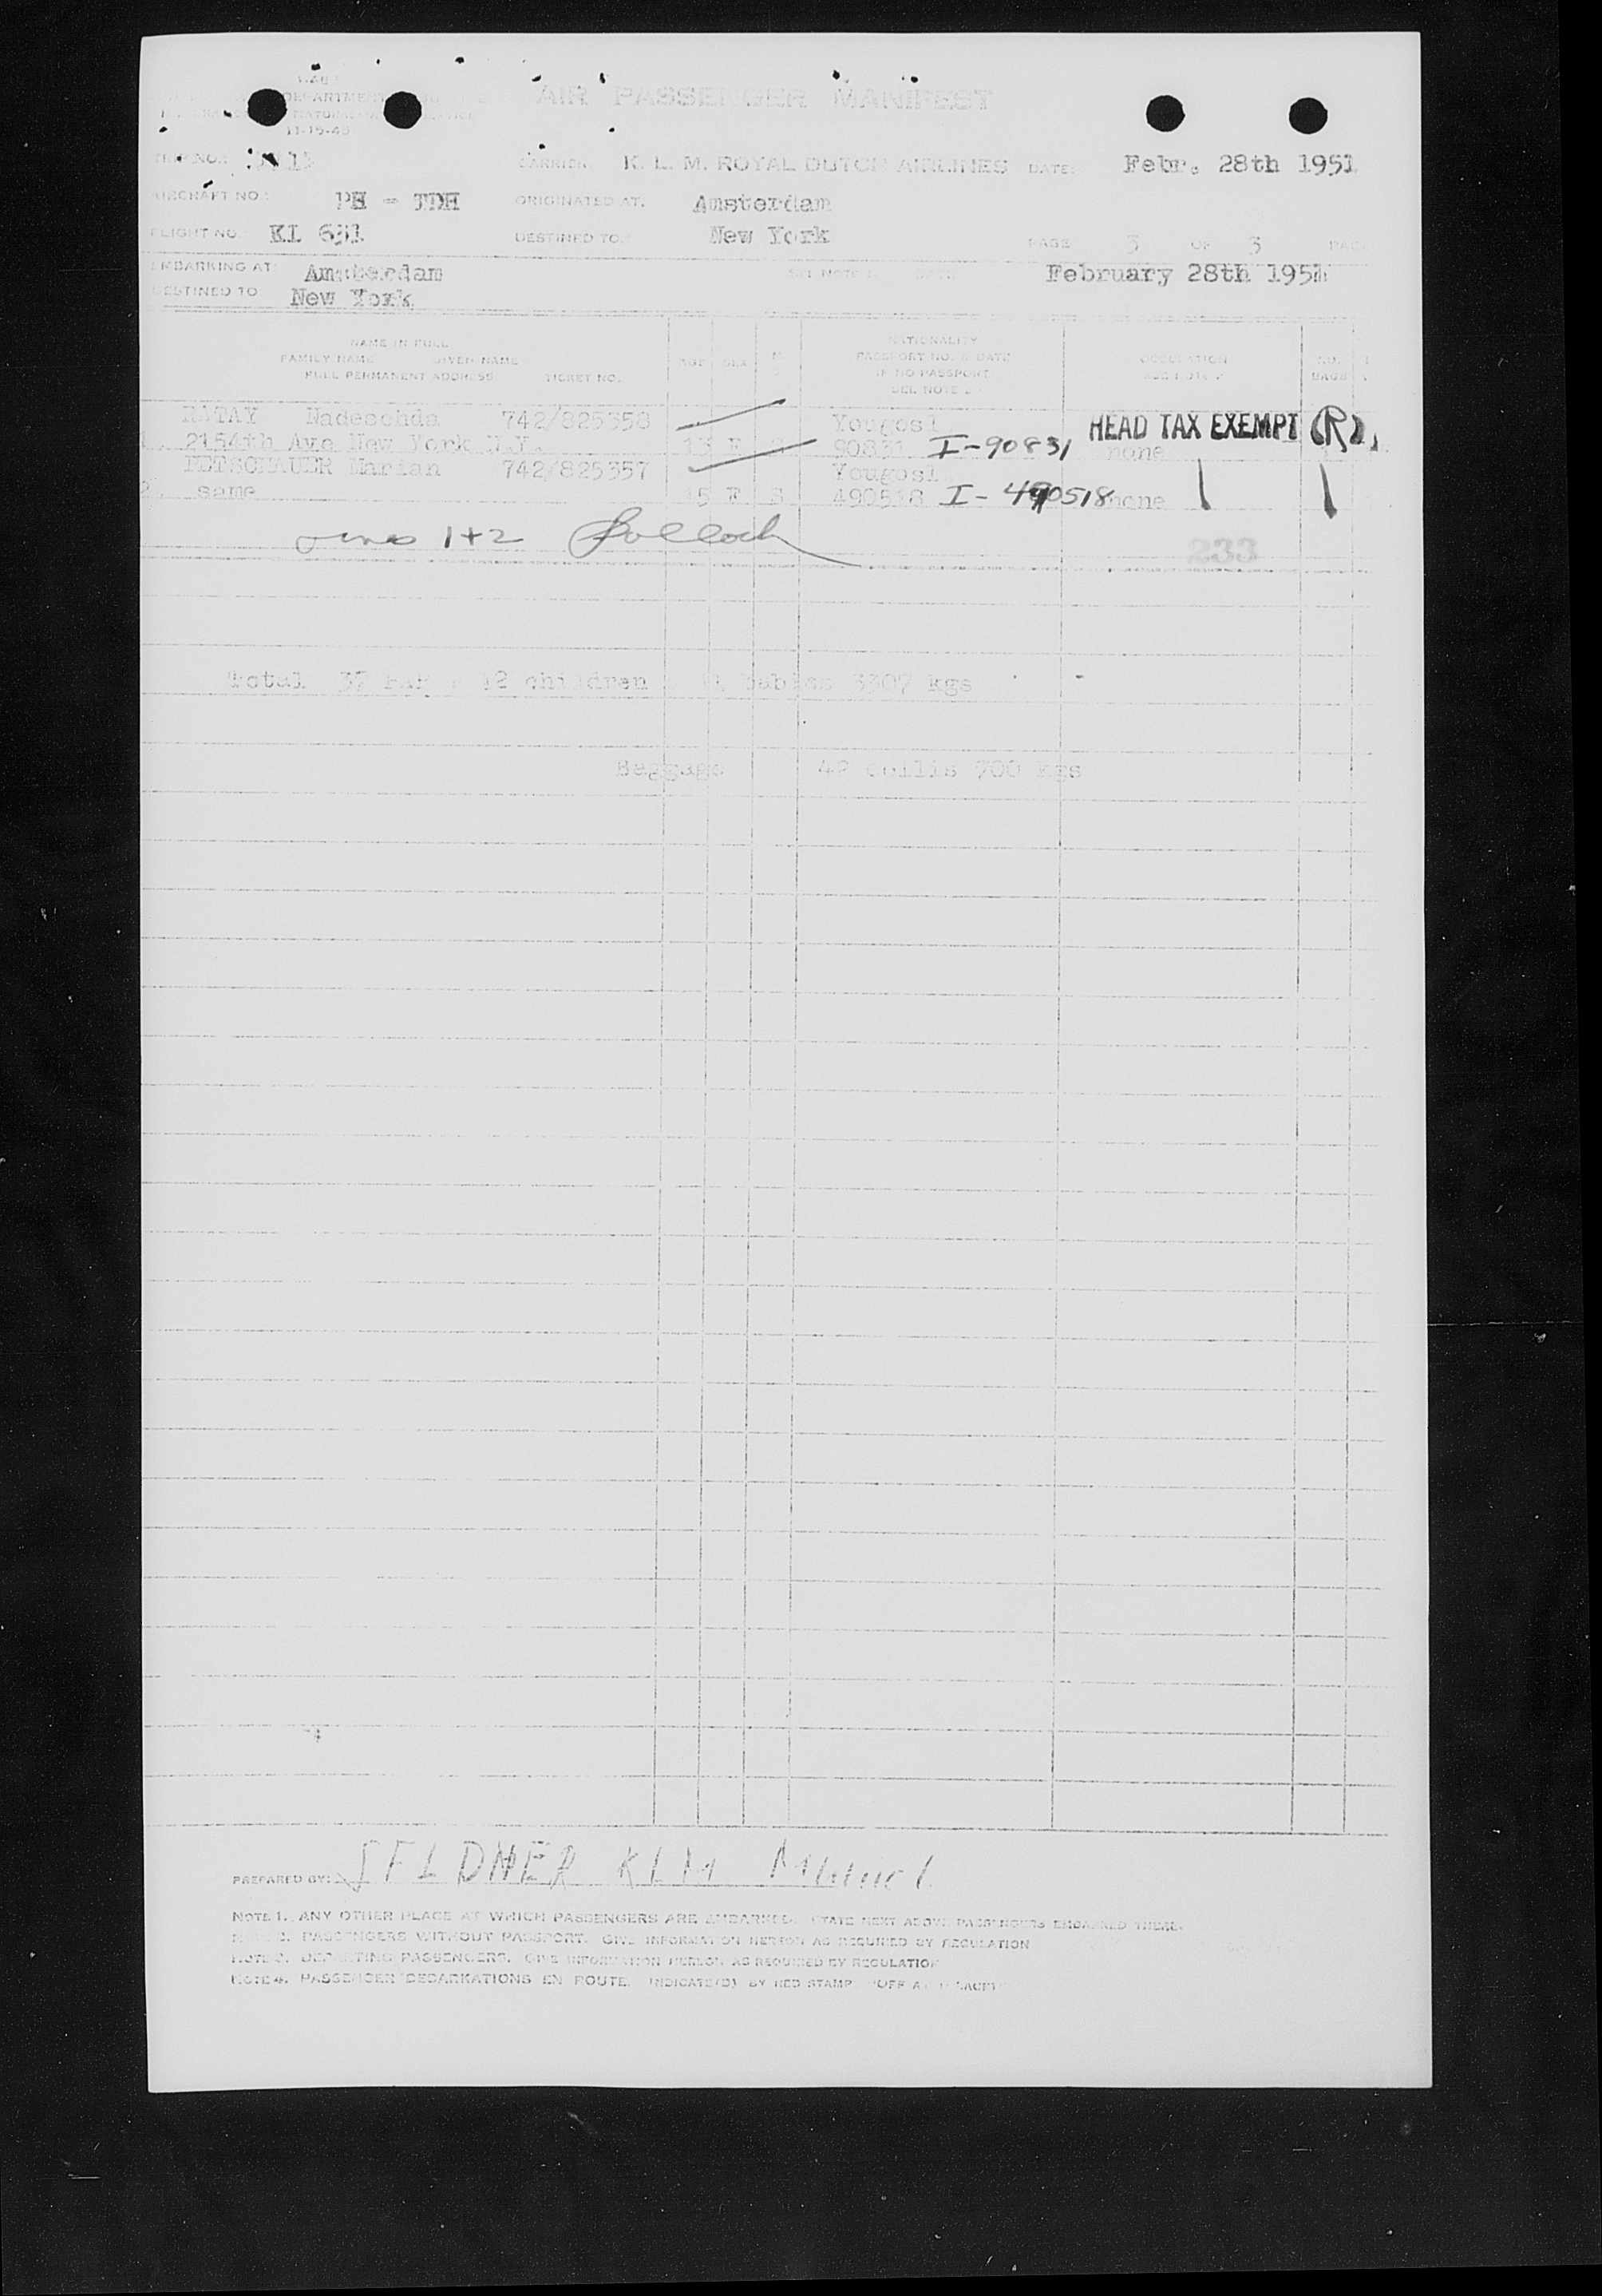 AIR PASSENGER MANIFEST
11-15-48
CARRIER: K. L. M. ROYAL DUTCH AIRLINES DATE: Febr. 28th 1951
AIRCRAFT NO: PH - TDH ORIGINATED AT: Amsterdam
FLIGHT NO. KL 631 DESTINED TO: New York PAGE 3 OF 3
EMBARKING AT Amsterdam February 28th 1951
DESTINED TO New York
NAME IN FULL NATIONALITY
FAMILY NAME GIVEN NAME AGE SEX PASSPORT NO. & DATE OCCUPATION NO.
FULL PERMANENT ADDRESS TICKET NO. IF NO PASSPORT SEE NOTE BAGS
SEE NOTE
Nadeschda 742/825358 Yougosl HEAD TAX EXEMPT (R)
2154th Ave New York N.Y. 13 F 90831 I-90831 none
Marian 742/825357 Yougosl
2. same 5 F S 490518 I-490518 none
1+2 Pollock
233
Total 37 12 children babies 3307 kgs
Baggage 42 collis 700 kgs
PREPARED BY: KLM
NOTE 1. ANY OTHER PLACE AT WHICH PASSENGERS ARE EMBARKED. STATE NEXT ABOVE PASSENGERS EMBARKED THERE.
NOTE 2. PASSENGERS WITHOUT PASSPORT. GIVE INFORMATION HEREON AS REQUIRED BY REGULATION
NOTE 3. DEPARTING PASSENGERS. GIVE INFORMATION HEREON AS REQUIRED BY REGULATION
NOTE 4. PASSENGER DEBARKATIONS EN ROUTE. INDICATE(D) BY RED STAMP "OFF AT